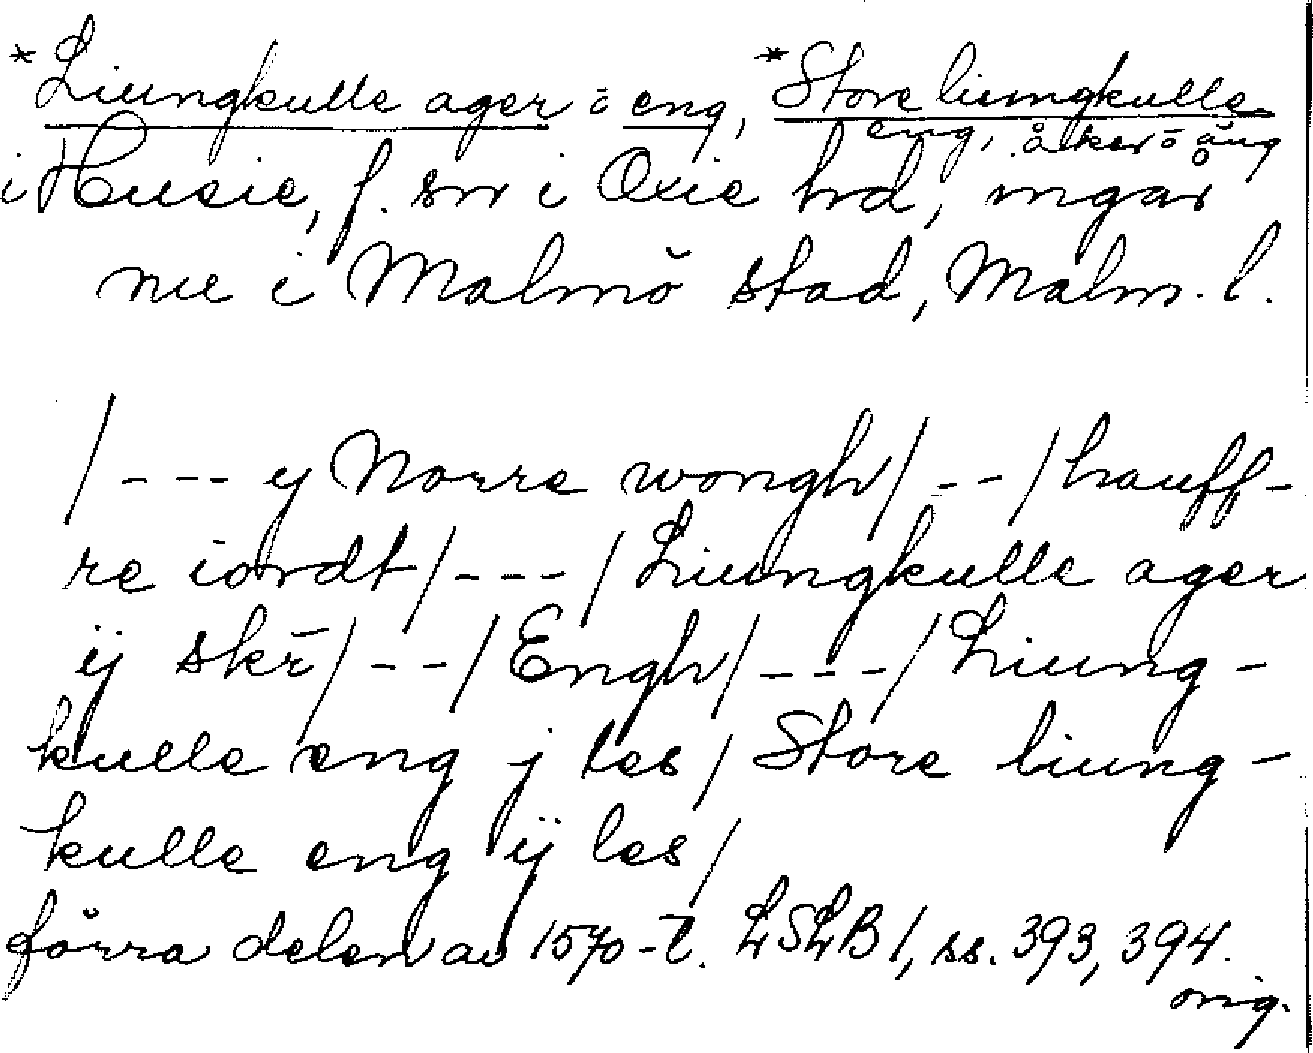 *Liungkulle ager o eng, *Store liungkulle
eng, åker o äng
i Husie, f. sn i Oxie hd, ingår
nu i Malmö stad, Malm. l.
/--- y Norre wongh/--/hauff-
re iordt/---/Liungkulle ager
ij skr̄/--/Engh/---/Liung-
kulle eng j les/Store liung-
kulle eng ij les/
förra delen av 1570-t. LSLB 1, ss. 393, 394.
orig.